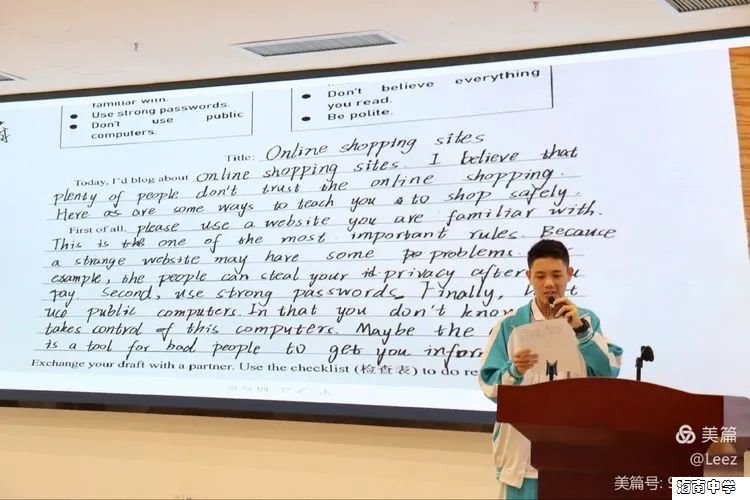 familiar with.
● Use strong passwords.
● Don't use public
computers.
● Don't believe everything
you read.
● Be polite.
Title: Online shopping sites
Today, I'd blog about online shopping sites. I believe that
plenty of people don't trust the online shopping.
Here are some ways to teach you to shop safely.
First of all, please use a website you are familiar with.
This is the one of the most important rules. Because
a strange website may have some problems.
example, the people can steal your privacy after
pay. Second, use strong passwords. Finally,
use public computers. In that you don't know
takes control of this computers. Maybe the
is a tool for bad people to get you infor
Exchange your draft with a partner. Use the checklist (检查表) to do re
美篇
@Leez
美篇号: 
海南中学